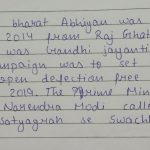 bharat Abhiyan was
2014 from Raj Ghat
was Gandhi jayanti
mpaign was to set
open defection free
2019. The Prime Min
Narendra Modi calle
Satyagrah se Swachh